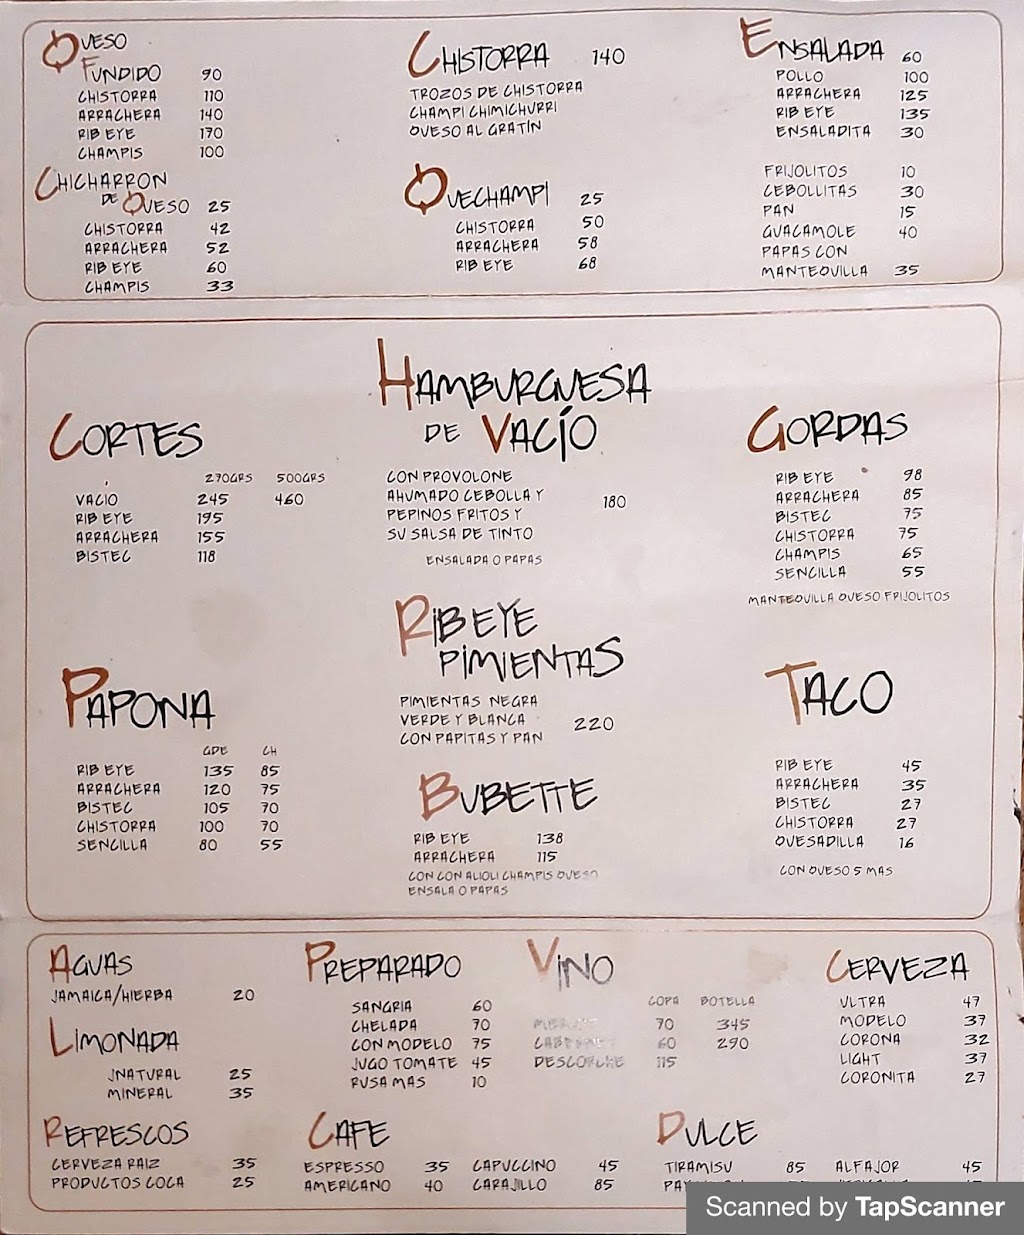 QUESO
FUNDIDO 90
CHISTORRA 110
ARRACHERA 140
RIB EYE 170
CHAMPIS 100
CHICHARRON
DE QUESO 25
CHISTORRA 42
ARRACHERA 52
RIB EYE 60
CHAMPIS 33
CHISTORRA 140
TROZOS DE CHISTORRA
CHAMPI CHIMICHURRI
QUESO AL GRATÍN
QUECHAMPI 25
CHISTORRA 50
ARRACHERA 58
RIB EYE 68
ENSALADA 60
POLLO 100
ARRACHERA 125
RIB EYE 135
ENSALADITA 30
FRIJOLITOS 10
CEBOLLITAS 30
PAN 15
GUACAMOLE 40
PAPAS CON
MANTEQUILLA 35
CORTES
270GRS 500GRS
VACÍO 245 460
RIB EYE 195
ARRACHERA 155
BISTEC 118
HAMBURGUESA
DE VACÍO
CON PROVOLONE
AHUMADO CEBOLLA Y 180
PEPINOS FRITOS Y
SU SALSA DE TINTO
ENSALADA O PAPAS
GORDAS
RIB EYE 98
ARRACHERA 85
BISTEC 75
CHISTORRA 75
CHAMPIS 65
SENCILLA 55
MANTEQUILLA QUESO FRIJOLITOS
PAPONA
GDE CH
RIB EYE 135 85
ARRACHERA 120 75
BISTEC 105 70
CHISTORRA 100 70
SENCILLA 80 55
RIB EYE
PIMIENTAS
PIMIENTAS NEGRA
VERDE Y BLANCA 220
CON PAPITAS Y PAN
BUBETTE
RIB EYE 138
ARRACHERA 115
CON CON ALIOLI CHAMPIS QUESO
ENSALA O PAPAS
TACO
RIB EYE 45
ARRACHERA 35
BISTEC 27
CHISTORRA 27
QUESADILLA 16
CON QUESO 5 MAS
AGUAS
JAMAICA/HIERBA 20
LIMONADA
JNATURAL 25
MINERAL 35
REFRESCOS
CERVEZA RAIZ 35
PRODUCTOS COCA 25
PREPARADO
SANGRIA 60
CHELADA 70
CON MODELO 75
JUGO TOMATE 45
RUSA MAS 10
VINO
COPA BOTELLA
MERLOT 70 345
CABERNET 60 290
DESCORCHE 115
CERVEZA
ULTRA 47
MODELO 37
CORONA 32
LIGHT 37
CORONITA 27
CAFE
ESPRESSO 35 CAPUCCINO 45
AMERICANO 40 CARAJILLO 85
DULCE
TIRAMISU 85 ALFAJOR 45
Scanned by TapScanner